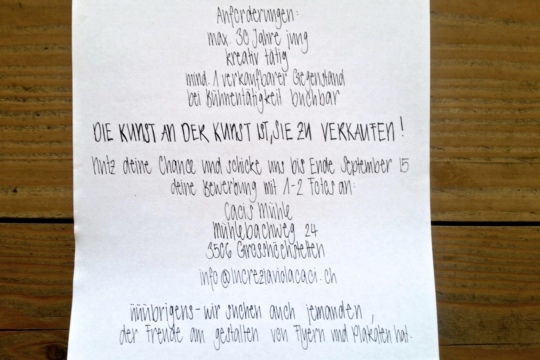 Anforderungen:
max. 30 Jahre jung
kreativ tätig
mind. 1 verkaufbarer Gegenstand
bei Bühnentätigkeit buchbar
DIE KUNST AN DER KUNST IST, SIE ZU VERKAUFEN!
Nutz deine Chance und schicke uns bis Ende September 15
deine Bewerbung mit 1-2 Fotos an:
Cacis Mühle
Mühlebachweg 24
3506 Grosshöchstetten
info@lucreziaviolacaci.ch
üüübrigens - wir suchen auch jemanden,
der Freude am gestalten von Flyern und Plakaten hat.